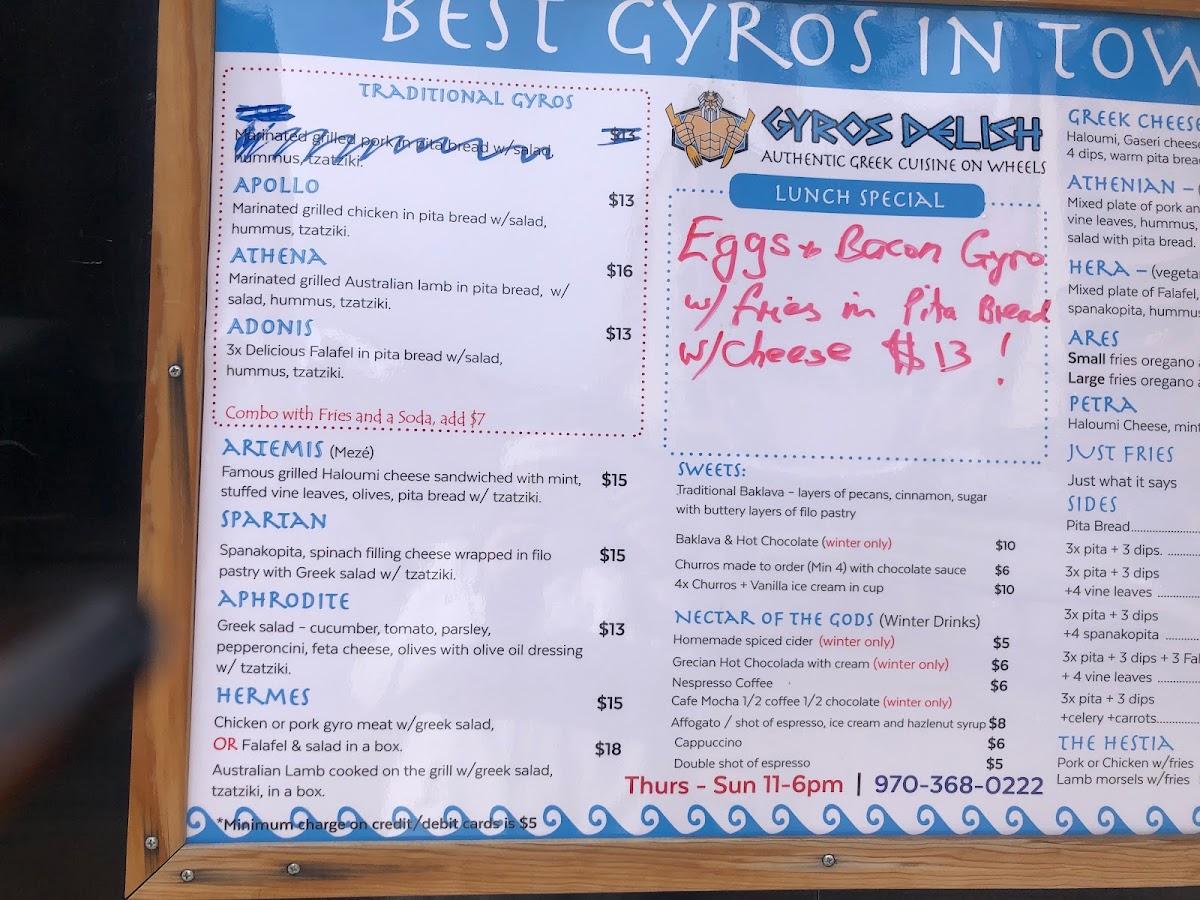 BEST GYROS IN TOW
TRADITIONAL GYROS
Marinated grilled pork in pita bread w/salad, $13
hummus, tzatziki.
APOLLO
Marinated grilled chicken in pita bread w/salad, $13
hummus, tzatziki.
ATHENA
Marinated grilled Australian lamb in pita bread, w/ $16
salad, hummus, tzatziki.
ADONIS
3x Delicious Falafel in pita bread w/salad, $13
hummus, tzatziki.
Combo with Fries and a Soda, add $7
ARTEMIS (Mezé)
Famous grilled Haloumi cheese sandwiched with mint, $15
stuffed vine leaves, olives, pita bread w/ tzatziki.
SPARTAN
Spanakopita, spinach filling cheese wrapped in filo $15
pastry with Greek salad w/ tzatziki.
APHRODITE
Greek salad – cucumber, tomato, parsley, $13
pepperoncini, feta cheese, olives with olive oil dressing
w/ tzatziki.
HERMES
Chicken or pork gyro meat w/greek salad, $15
OR Falafel & salad in a box.
Australian Lamb cooked on the grill w/greek salad, $18
tzatziki, in a box.
*Minimum charge on credit/debit cards is $5
GYROS DELISH
AUTHENTIC GREEK CUISINE ON WHEELS
LUNCH SPECIAL
Eggs + Bacon Gyro
w/ fries in Pita Bread
w/Cheese $13 !
SWEETS:
Traditional Baklava – layers of pecans, cinnamon, sugar
with buttery layers of filo pastry
Baklava & Hot Chocolate (winter only) $10
Churros made to order (Min 4) with chocolate sauce $6
4x Churros + Vanilla ice cream in cup $10
NECTAR OF THE GODS (Winter Drinks)
Homemade spiced cider (winter only) $5
Grecian Hot Chocolada with cream (winter only) $6
Nespresso Coffee $6
Cafe Mocha 1/2 coffee 1/2 chocolate (winter only)
Affogato / shot of espresso, ice cream and hazlenut syrup $8
Cappuccino $6
Double shot of espresso $5
Thurs - Sun 11-6pm | 970-368-0222
GREEK CHEESE
Haloumi, Gaseri cheese
4 dips, warm pita brea
ATHENIAN – (
Mixed plate of pork an
vine leaves, hummus,
salad with pita bread.
HERA – (vegeta
Mixed plate of Falafel,
spanakopita, hummus
ARES
Small fries oregano
Large fries oregano
PETRA
Haloumi Cheese, mint
JUST FRIES
Just what it says
SIDES
Pita Bread..............
3x pita + 3 dips. ........
3x pita + 3 dips
+4 vine leaves .........
3x pita + 3 dips
+4 spanakopita ........
3x pita + 3 dips + 3 Fal
+ 4 vine leaves .........
3x pita + 3 dips
+celery +carrots.......
THE HESTIA
Pork or Chicken w/fries
Lamb morsels w/fries